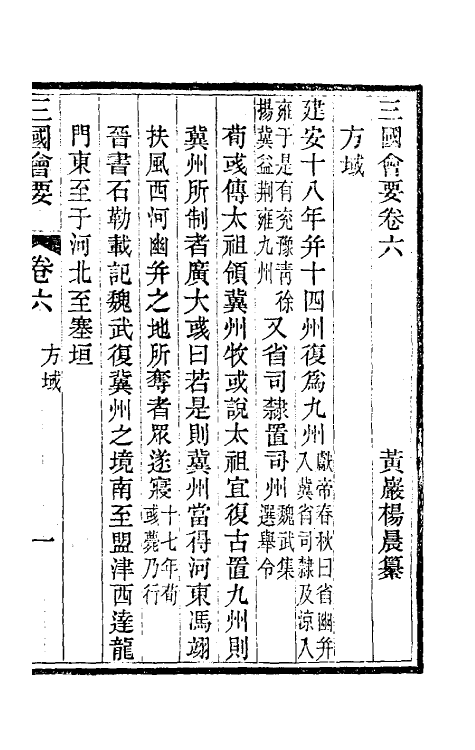 三國會要卷六
黃巖楊晨纂
方域
建安十八年并十四州復爲九州獻帝春秋曰省幽并入冀省司隸及涼入
雍于是有兗豫青徐揚冀益荆雍九州又省司隸置司州魏武集選舉令
荀彧傳太祖領冀州牧或說太祖宜復古置九州則
冀州所制者廣大彧曰若是則冀州當得河東馮翊
扶風西河幽并之地所奪者眾遂寢十七年荀彧薨乃行
晉書石勒載記魏武復冀州之境南至盟津西達龍
門東至于河北至塞垣
三國會要
卷六
方域
一